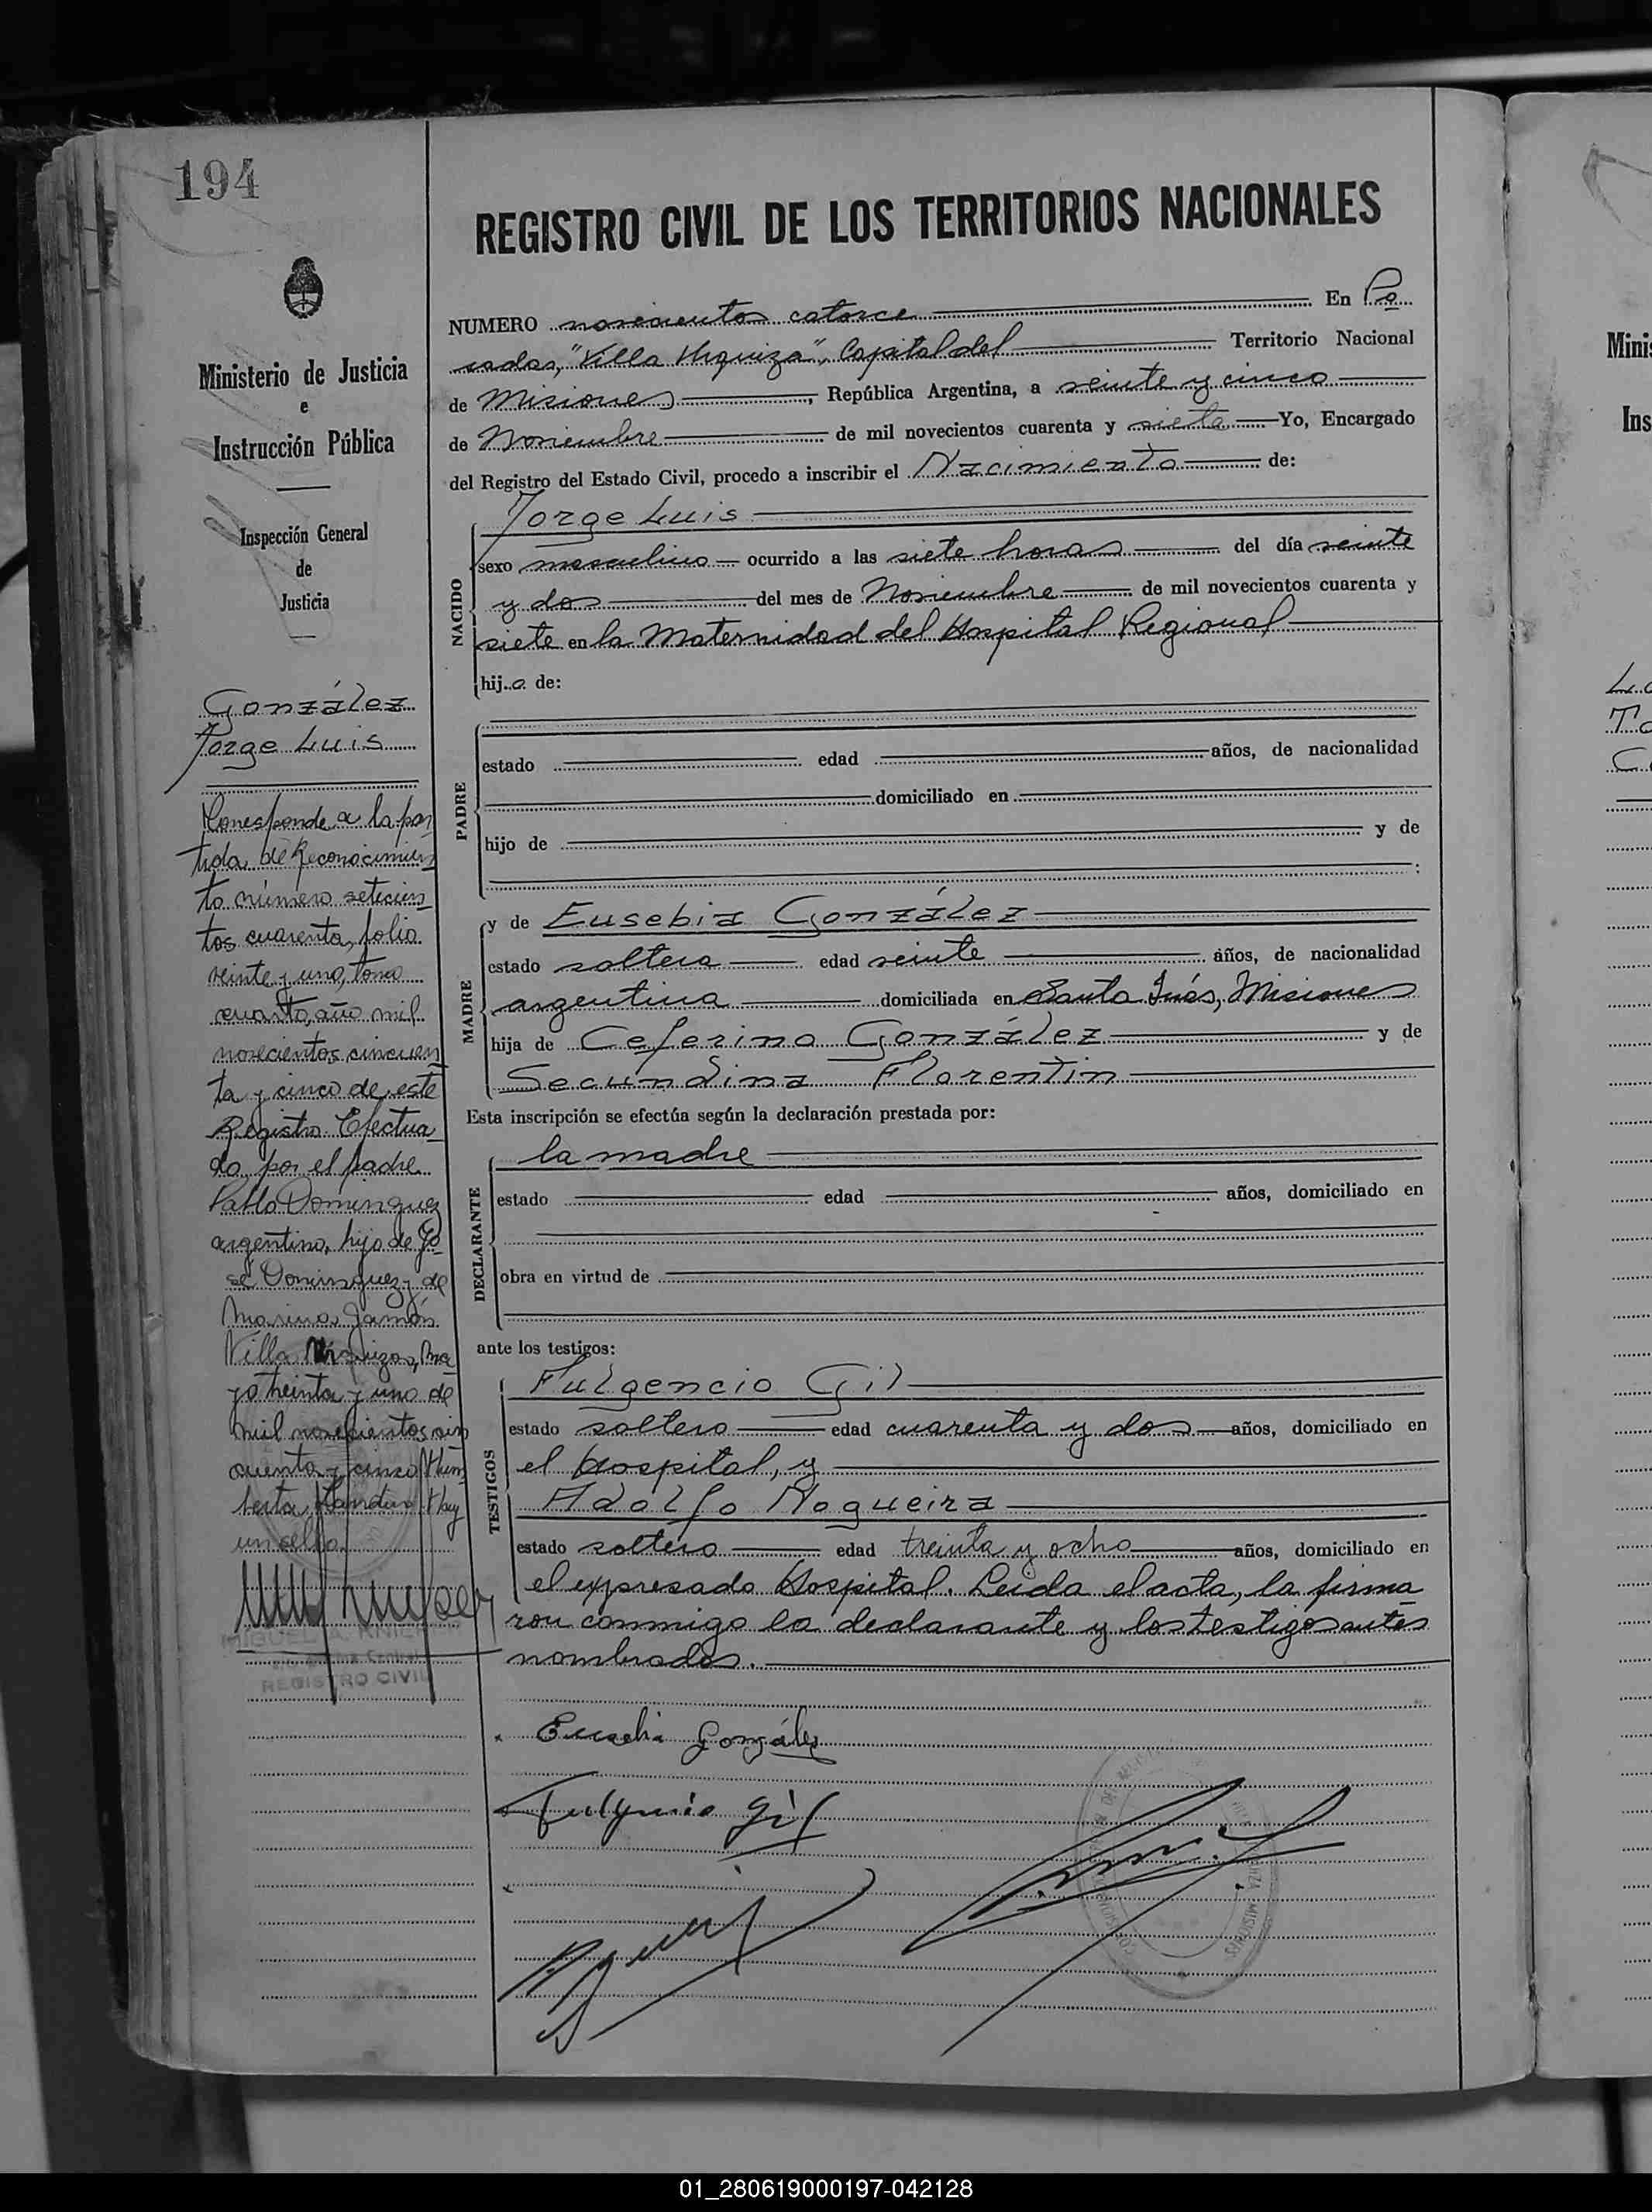 194
Ministerio de Justicia
e
Instrucción Pública
Inspección General
de
Justicia
González
Jorge Luis
Corresponde a la par
tida de Reconocimien
to número setecien
tos cuarenta, folio
veinte y uno, tomo
cuarto, año mil
novecientos cincuen
ta y cinco de este
Registro Efectua
do por el padre
Pablo Dominguez
argentino, hijo de Jo
sé Dominguez y de
Marina
Villa Urquiza, Ma
yo treinta y uno de
mil novecientos cin
cuenta y cinco
Hay
un sello.
MIGUEL A.
REGISTRO CIVIL
REGISTRO CIVIL DE LOS TERRITORIOS NACIONALES
NUMERO novecientos catorce En Po
sadas, "Villa Urquiza", Capital del Territorio Nacional
de Misiones, República Argentina, a veinte y cinco
de Noviembre de mil novecientos cuarenta y siete Yo, Encargado
del Registro del Estado Civil, procedo a inscribir el Nacimiento de:
NACIDO
Jorge Luis
sexo masculino ocurrido a las siete horas del día veinte
y dos del mes de Noviembre de mil novecientos cuarenta y
siete en la Maternidad del Hospital Regional
hijo de:
PADRE
estado edad años, de nacionalidad
domiciliado en
hijo de y de
:
MADRE
y de Eusebia González
estado soltera edad veinte años, de nacionalidad
argentina domiciliada en Santa Inés, Misiones
hija de Ceferino González y de
Secundina Florentin
Esta inscripción se efectúa según la declaración prestada por:
DECLARANTE
la madre
estado edad años, domiciliado en
obra en virtud de
ante los testigos:
TESTIGOS
Fulgencio Gil
estado soltero edad cuarenta y dos años, domiciliado en
el Hospital, y
Adolfo Nogueira
estado soltero edad treinta y ocho años, domiciliado en
el expresado Hospital. Leida el acta, la firma
ron conmigo la declarante y los testigos antes
nombrados.
Eusebia González
Fulgencio Gil
MISIONES
Minis
Ins
01_280619000197-042128